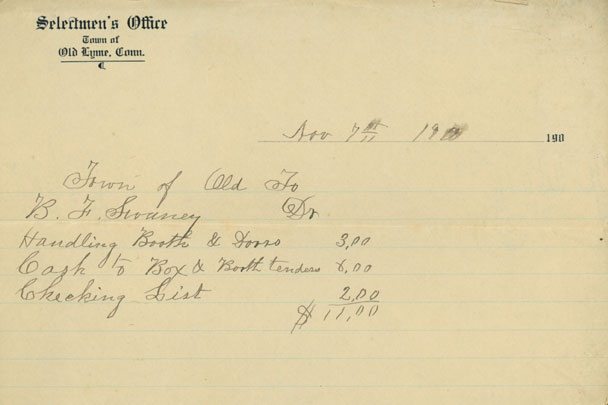 Selectmen's Office
Town of
Old Lyme, Conn.
Nov 7th 190
Town of Old To
B. F. Swaney Dr
Handling Booth & Doors 3,00
Cash to Box & Booth tenders 6,00
Checking List 2,00
$ 11,00